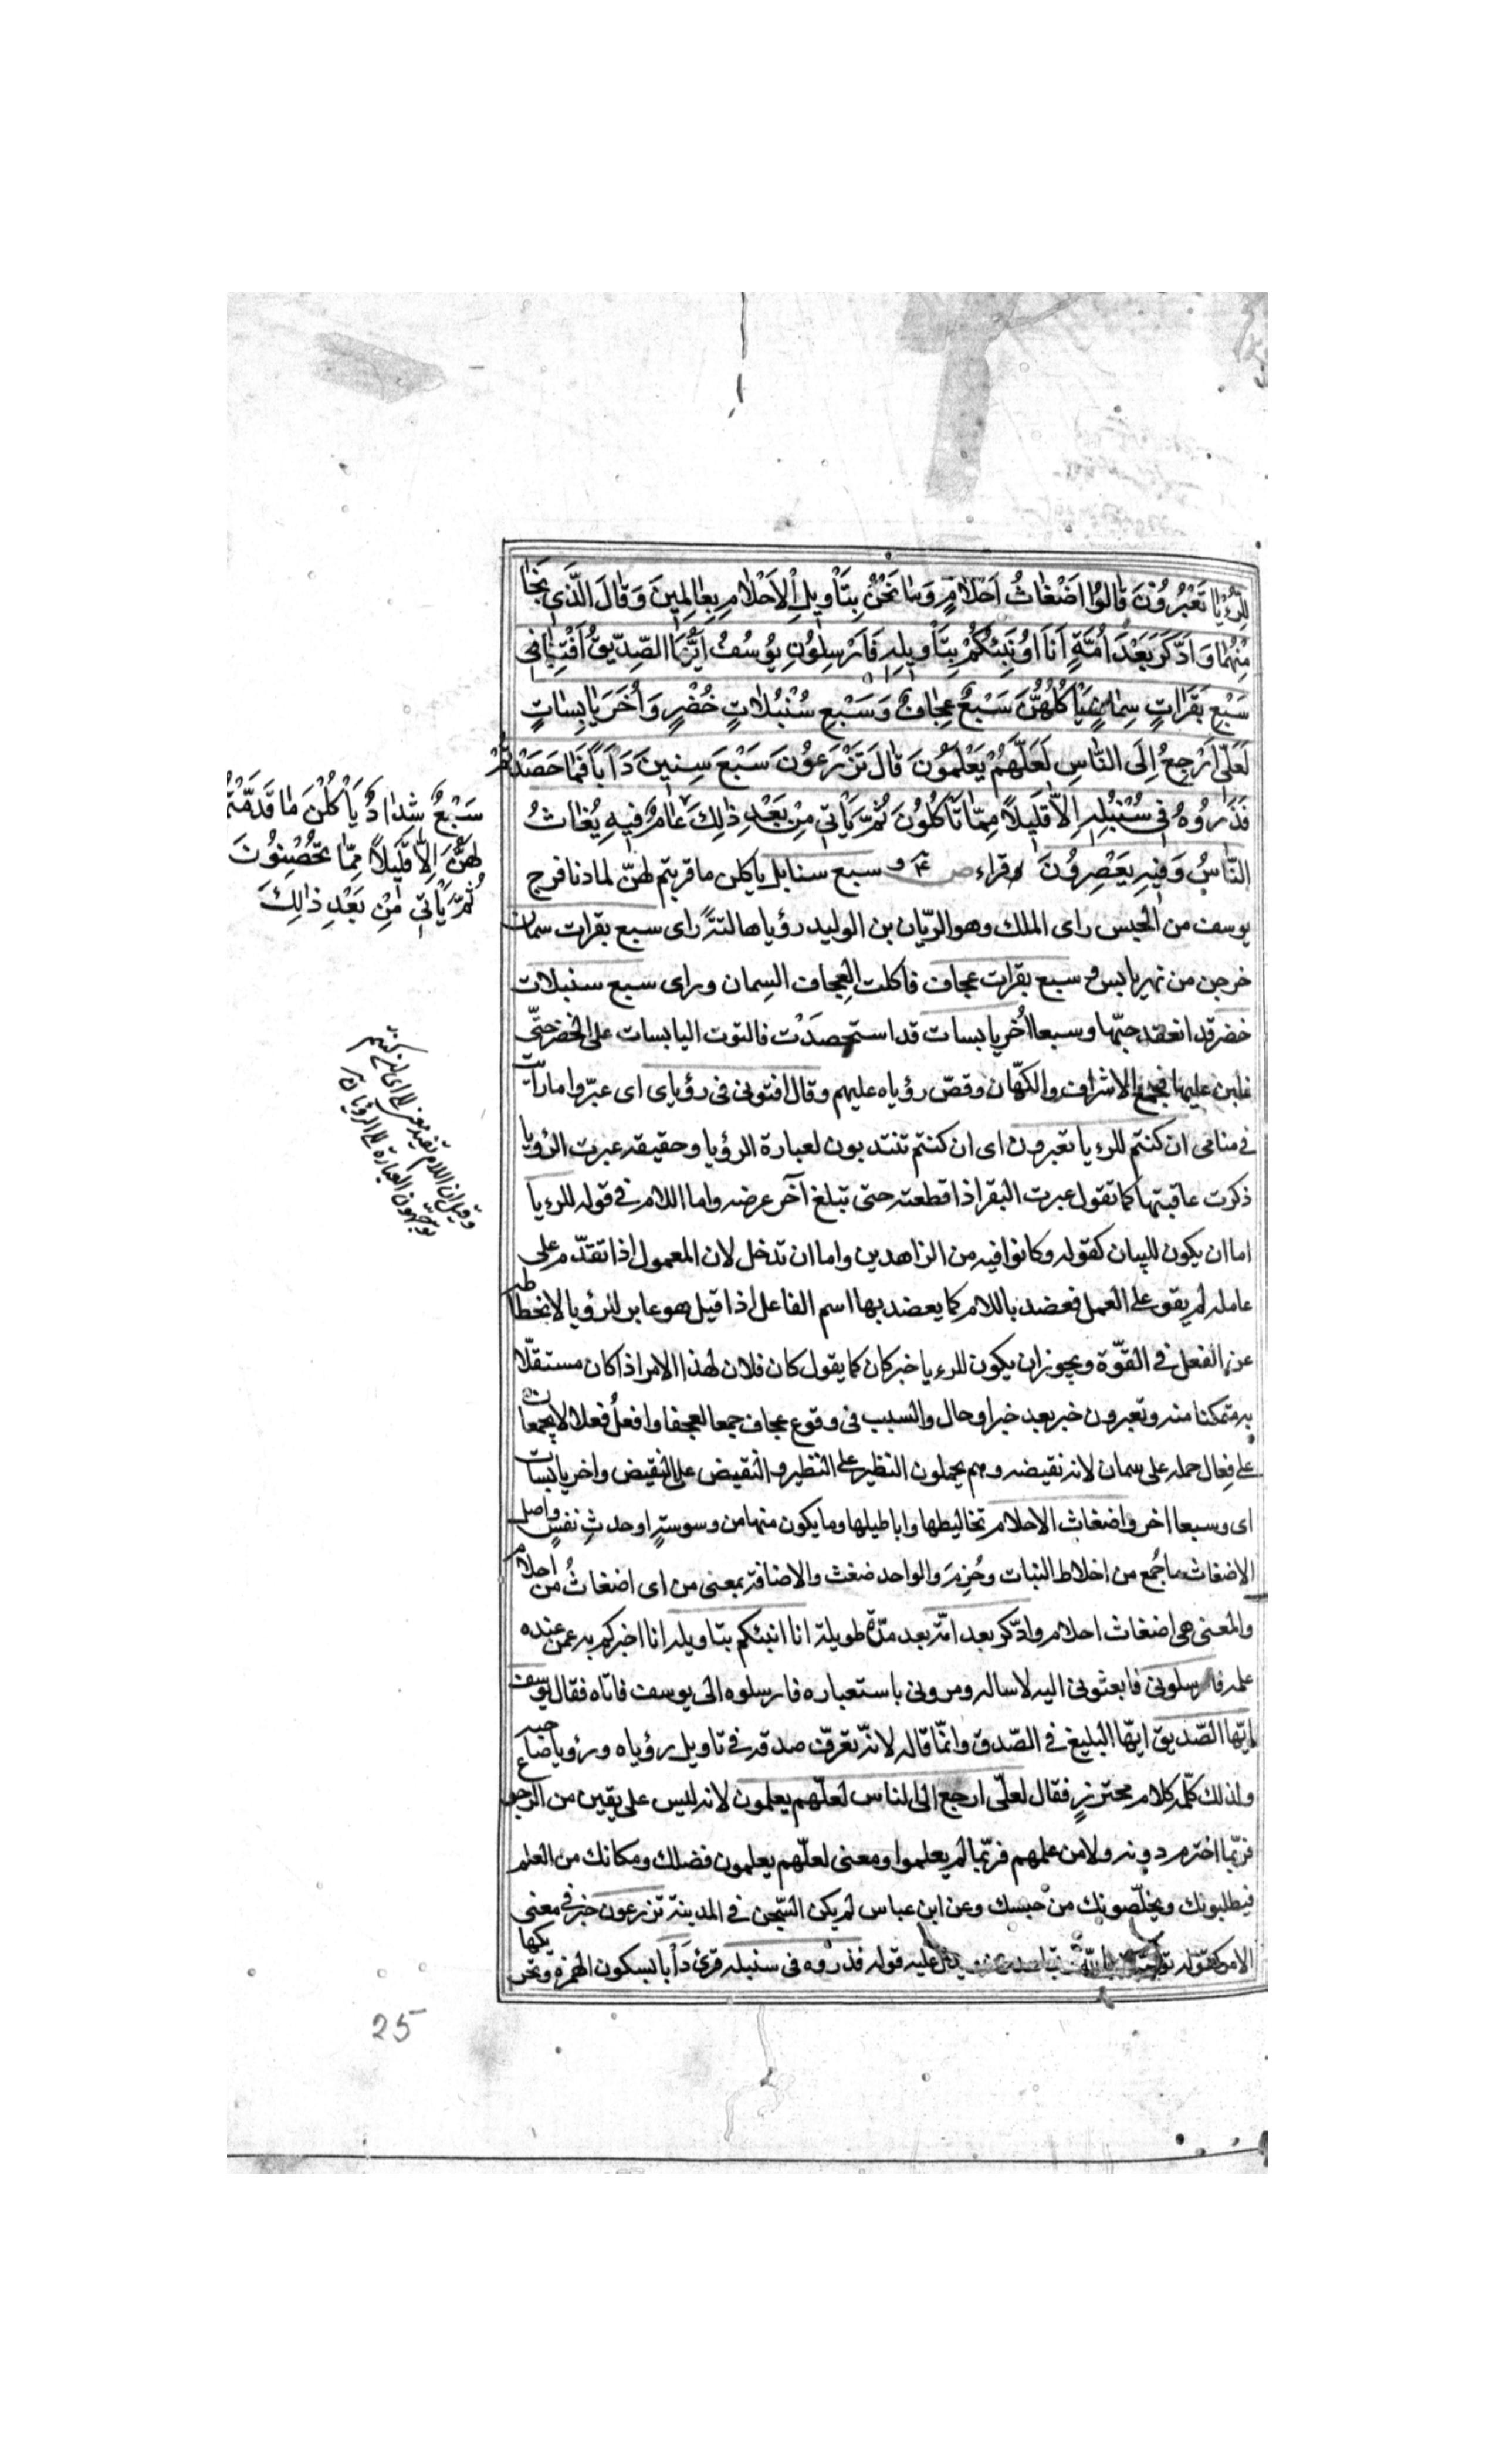 لِلرُّءْيَا تَعْبُرُونَ قَالُوا اَضْغَاثُ اَحْلَامٍ وَمَا نَحْنُ بِتَأْوِيلِ الْاَحْلَامِ بِعَالِمِينَ وَقَالَ الَّذِي نَجَا
مِنْهُمَا وَادَّكَرَ بَعْدَ اُمَّةٍ اَنَا اُنَبِّئُكُمْ بِتَأْوِيلِهِ فَاَرْسِلُونِ يُوسُفُ اَيُّهَا الصِّدِّيقُ اَفْتِنَا فِي
سَبْعِ بَقَرَاتٍ سِمَانٍ يَأْكُلُهُنَّ سَبْعٌ عِجَافٌ وَسَبْعِ سُنْبُلَاتٍ خُضْرٍ وَاُخَرَ يَابِسَاتٍ
لَعَلِّي اَرْجِعُ اِلَى النَّاسِ لَعَلَّهُمْ يَعْلَمُونَ قَالَ تَزْرَعُونَ سَبْعَ سِنِينَ دَاَبًا فَمَا حَصَدْتُمْ
فَذَرُوهُ فِي سُنْبُلِهِ اِلَّا قَلِيلًا مِمَّا تَأْكُلُونَ ثُمَّ يَأْتِي مِنْ بَعْدِ ذَلِكَ عَامٌ فِيهِ يُغَاثُ
النَّاسُ وَفِيهِ يَعْصِرُونَ وقراء سبع سنابل ياكلن ما قربتم لهنّ لما دنا فرج
يوسف من الحبس راى الملك وهو الريّان بن الوليد رؤيا هالته راى سبع بقرات سمان
خرجن من نهر يابس و سبع بقرات عجاف فاكلت العِجاف السِمان وراى سبع سنبلات
خضر قد انعقد حبّها وسبعا اُخر يابسات قد استحصدَت فالتوت اليابسات على الخضر حتّى
غلبن عليها فجمع الاشراف والكهّان وقصّ رؤياه عليهم وقال افتونى فى رؤياى اى عبّروا ما رايت
فى منامى ان كنتم للرءيا تعبرون اى ان كنتم تنتدبون لعبارة الرؤيا وحقيقه عبرت الرؤيا
ذكرت عاقبتها كما تقول عبرت البقر اذا قطعته حتى تبلغ آخر عرضه واما اللام فى قوله للرءيا
اما ان يكون للبيان كقوله وكانوا فيه من الزاهدين واما ان تدخل لان المعمول اذا تقدّم على
عامله لم يقو على العمل فعضد باللام كما يعضد بها اسم الفاعل اذا قيل هو عابر للرؤيا لانحطاطه
عن الفعل فى القوّة ويجوز ان يكون للرءيا خبر كان كما يقول كان فلان لهذا الامر اذا كان مستقلّا
به متمكنا منه وتعبرون خبر بعد خبر او حال والسبب فى وقوع عجاف جمعا لعجفا وافعلُ فعلا لا يجمعان
على فِعال حمله على سمان لانه نقيضه وهم يحملون النظير على النظير والنقيض على النقيض واخر يابسات
اى وسبعا اخر واضغاث الاحلام تخاليطها واباطيلها وما يكون منها من وسوسةٍ او حدثِ نفسٍ واصل
الاضغاث ما جُمع من اخلاط النبات وحُزِمَ والواحد ضغث والاضافة بمعنى من اى اضغاثُ من احلام
والمعنى هى اضغاث احلام وادّكر بعد امّة بعد مدّة طويلة انا انبئكم بتاويله انا اخبركم به عمن عنده
علمه فارسلونى فابعثونى اليه لاساله ومرونى باستعباره فارسلوه الى يوسف فاتاه فقال يوسف
ايّها الصّديق ايّها البليغ فى الصّدق وانمّا قاله لانّه تعرّف صدقه فى تاويل رؤياه ورؤيا صاحبه
ولذلك كلّمه كلام محترزٍ فقال لعلّى ارجع الى الناس لعلّهم يعلمون لانه ليس على يقين من الرجوع
فربّما اخترم دونه ولا من علمهم فربّما لم يعلموا ومعنى لعلّهم يعلمون فضلك ومكانك من العلم
فيطلبونك ويخلّصونك من حبسك وعن ابن عباس لم يكن السّجن فى المدينة تزرعون خبر فى معنى
الامر كقوله يدل عليه قوله فذروه فى سنبله قرئ دَأْبا بسكون الهمزة وتحريكها
سَبْعٌ شِدَادٌ يَأْكُلْنَ مَا قَدَّمْتُمْ
لَهُنَّ اِلَّا قَلِيلًا مِمَّا تُحْصِنُونَ
ثُمَّ يَأْتِي مِنْ بَعْدِ ذَالِكَ
وقيل ان اللام تفيد معنى الى اى ان كنتم
توجّهون العبارة الى الرؤيا
25